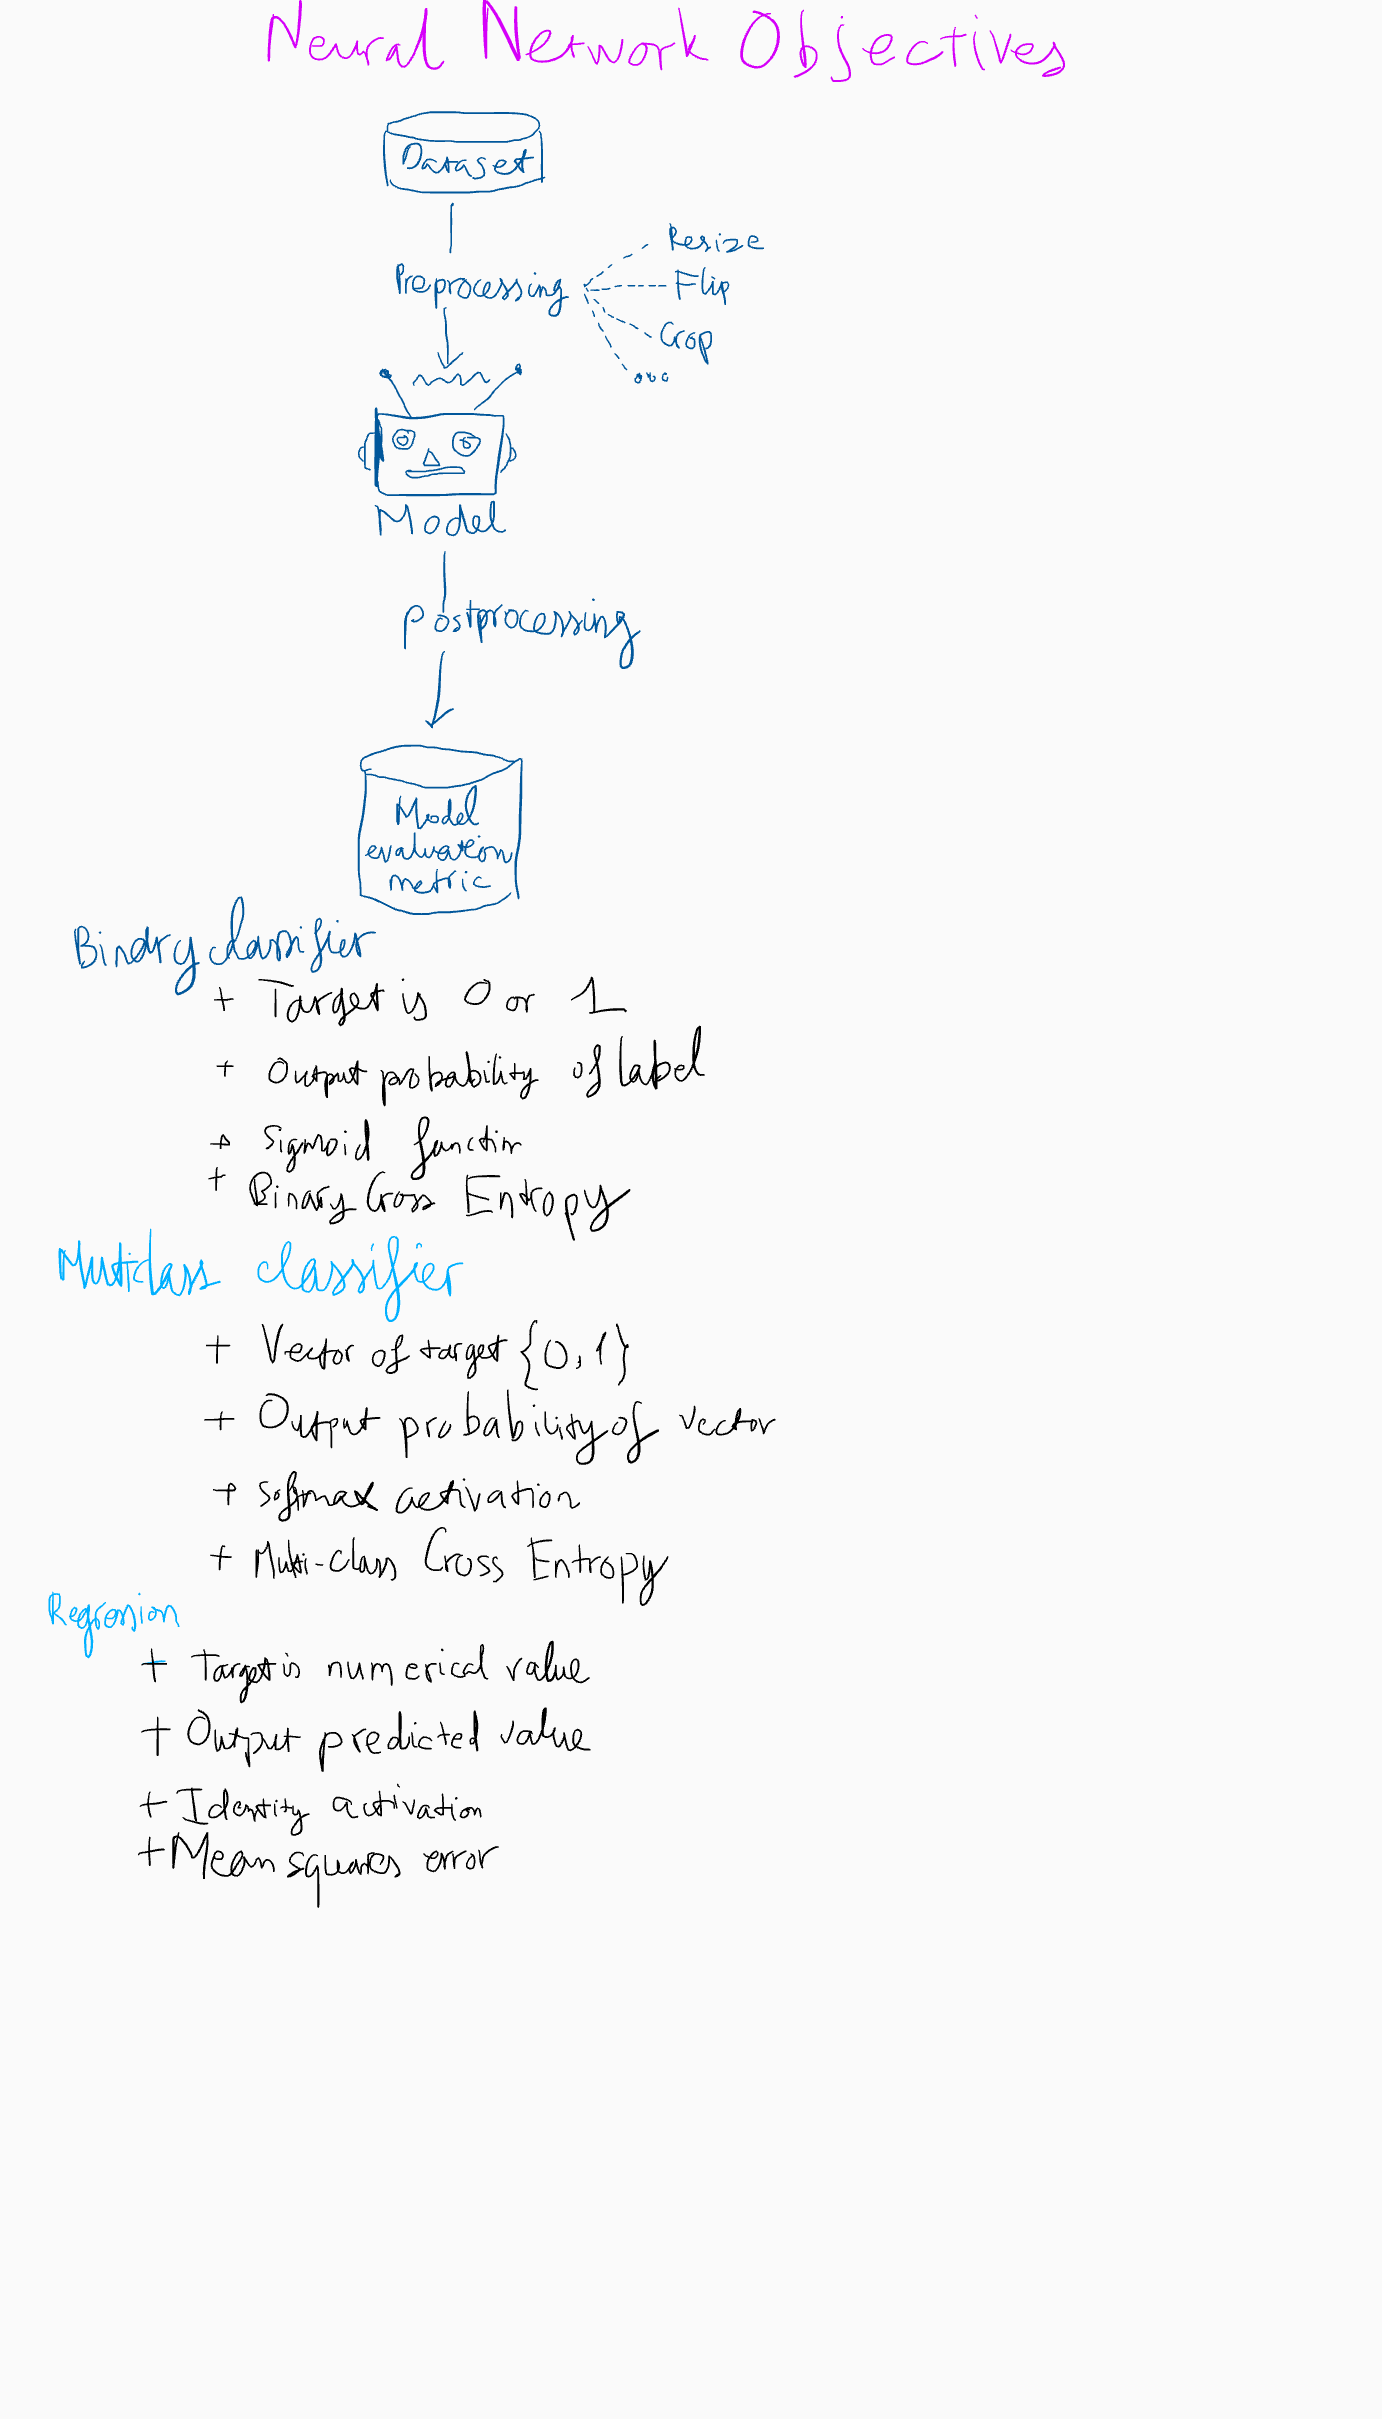 Neural Network Objectives
Dataset
Resize
Preprocessing
Flip
Crop
...
Model
Postprocessing
Model
evaluation
metric
Binary classifier
+ Target is 0 or 1
+ Output probability of label
+ Sigmoid function
+ Binary Cross Entropy
Multiclass classifier
+ Vector of target {0,1}
+ Output probability of vector
+ Softmax activation
+ Multi-class Cross Entropy
Regression
+ Target is numerical value
+ Output predicted value
+ Identity activation
+ Mean squares error